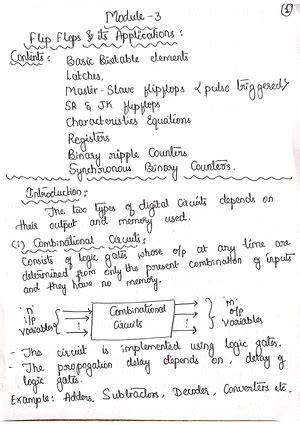 Module - 3
1
Flip Flops & its Applications :
Contents : Basic Bistable elements
Latches,
Master-Slave flipflops < pulse triggered>
SR & JK flipflops
Characteristics Equations
Registers
Binary ripple Counters
Synchronous Binary Counters.
Introduction :
The two types of digital Circuits depends on
their output and memory used.
(i) Combinational Circuits :
Consists of logic gates whose o/p at any time are
determined from only the present combination of inputs
and they have no memory.
'n'
i/p
variables
Combinational
Circuits
'm'
o/p
variables
- The circuit is implemented using logic gates.
- The propogation delay depends on, delay of
logic gates.
Example: Adders, Subtractors, Decoder, Converters etc.